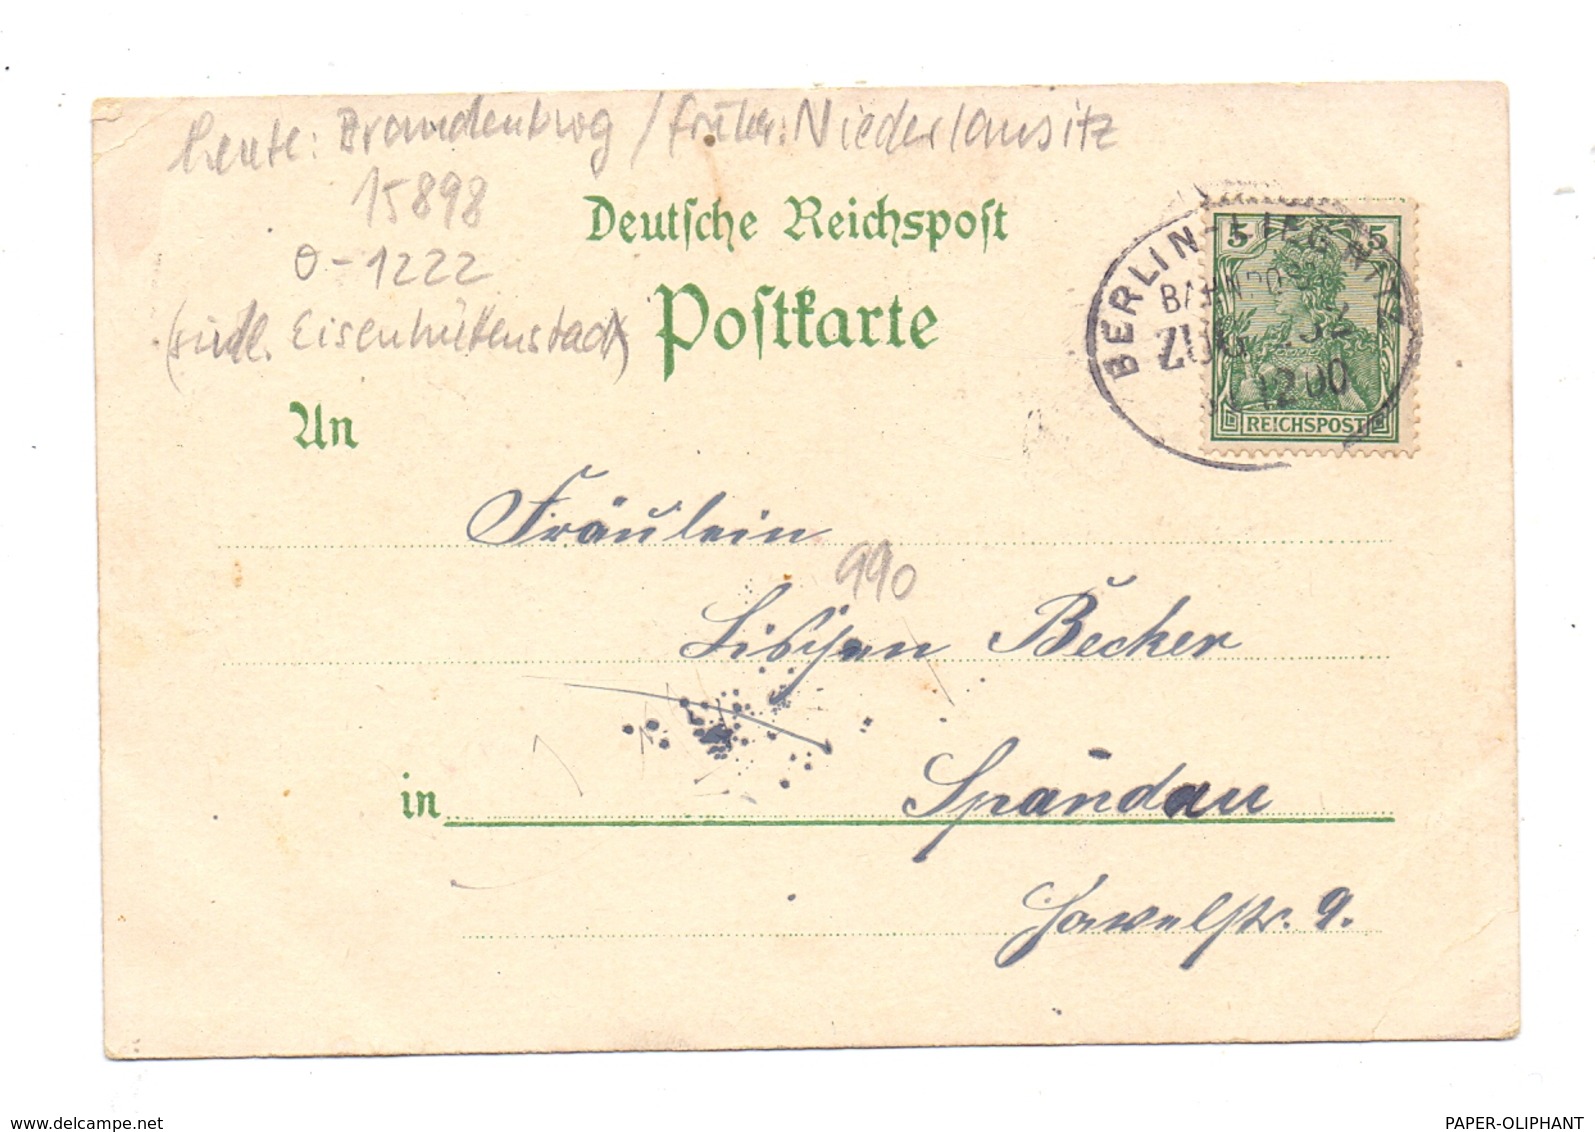 heute: Brandenburg / früher: Niederlausitz
15898
O-1222
(südl. Eisenhüttenstadt)
Deutsche Reichspost
Postkarte
BERLIN-LIEGNITZ
BAHNPOST
ZUG
12 00
5 5
REICHSPOST
An
Fräulein
990
Lisschen Becker
in Spandau
Havelstr. 9.
delcampe.net
PAPER-OLIPHANT